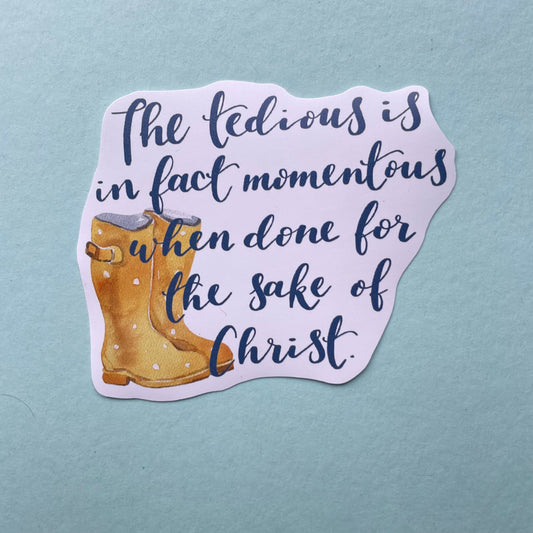 The tedious is
in fact momentous
when done for
the sake of
Christ.